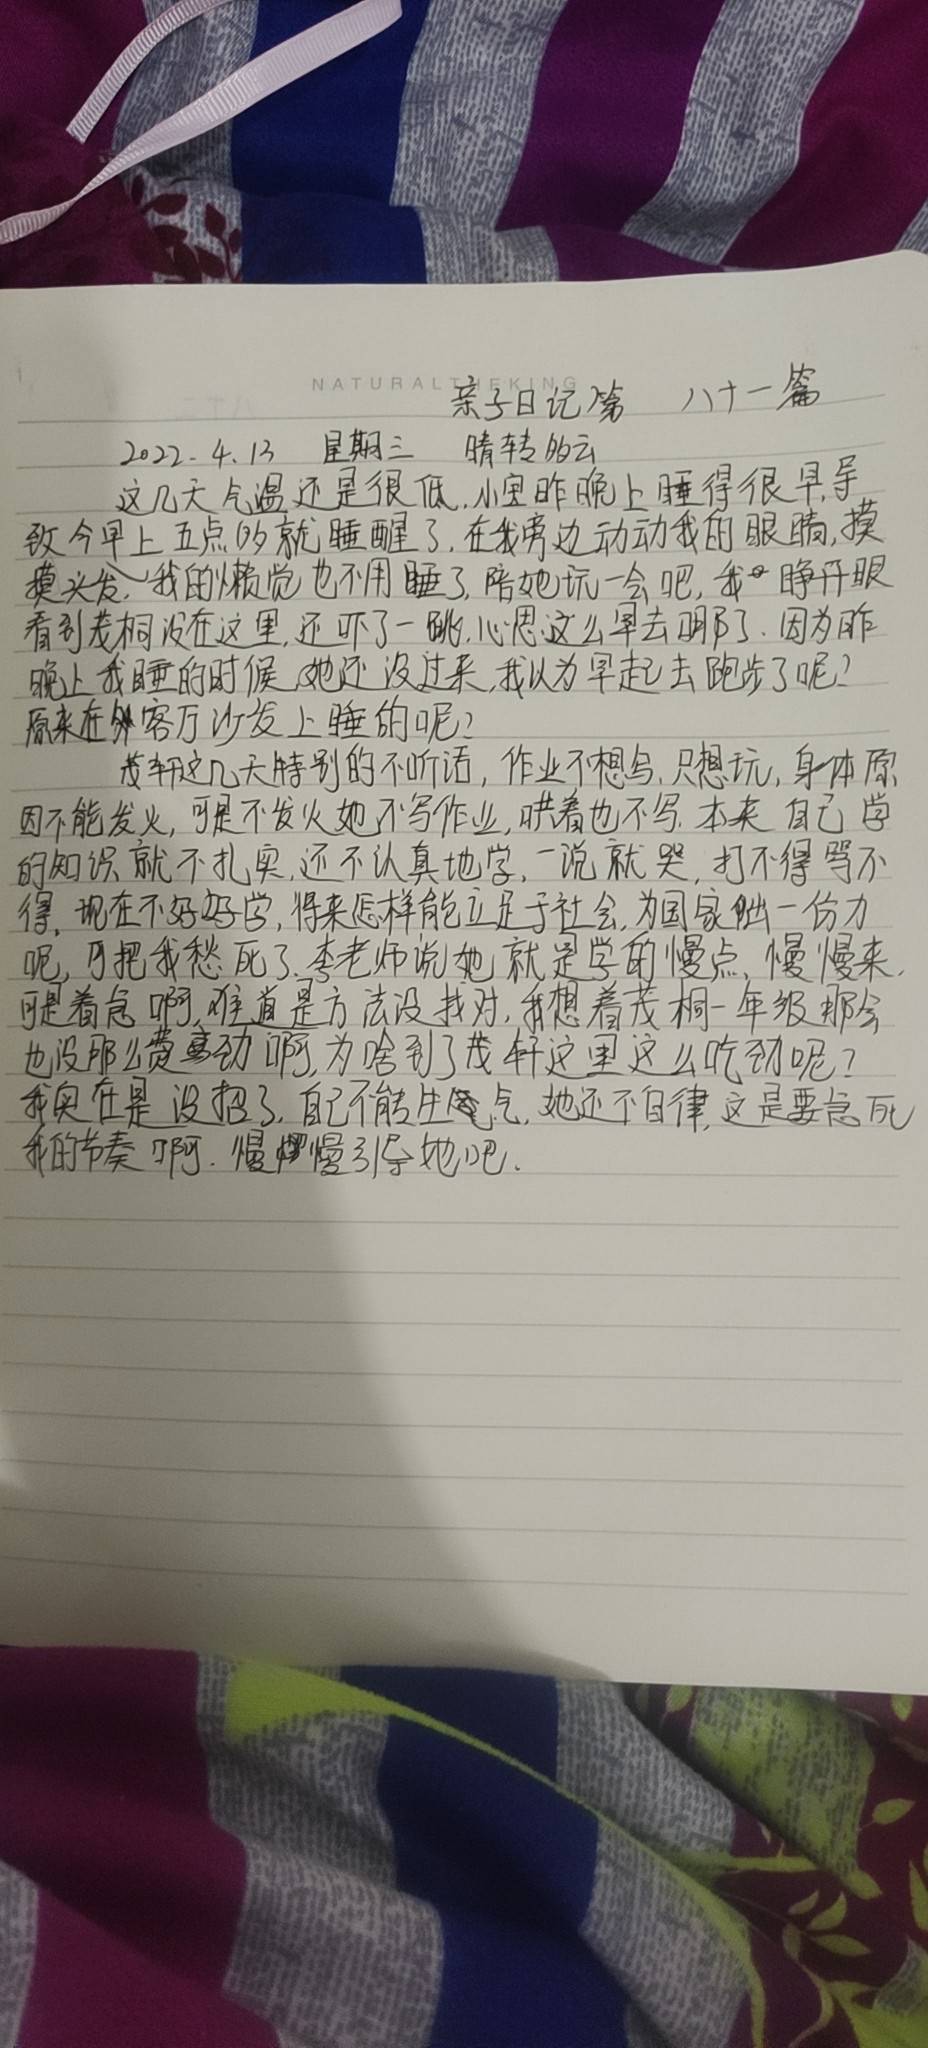 NATURALTHEKING
亲子日记第 八十一篇
2022.4.13 星期三 晴转多云
这几天气温还是很低,小宝昨晚上睡得很早,导
致今早上五点多就睡醒了,在我旁边动动我的眼睛,摸
摸头发,我的懒觉也不用睡了,陪她玩一会吧,我一睁开眼
看到茂桐没在这里,还吓了一跳,心思这么早去哪了.因为昨
晚上我睡的时候她还没过来,我以为早起去跑步了呢?
原来在客厅沙发上睡的呢?
茂轩这几天特别的不听话,作业不想写,只想玩,身体原
因不能发火,可是不发火她不写作业,哄着也不写.本来自己学
的知识就不扎实,还不认真地学,一说就哭,打不得骂不
得,现在不好好学,将来怎样能立足于社会,为国家出一份力
呢,可把我愁死了.李老师说她就是学的慢点,慢慢来,
可是着急啊,难道是方法没找对,我想着茂桐一年级那会
也没那么费劲啊,为啥到了茂轩这里这么吃劲呢?
我实在是没招了,自己不能生气,她还不自律,这是要急死
我的节奏啊.慢慢引导她吧.